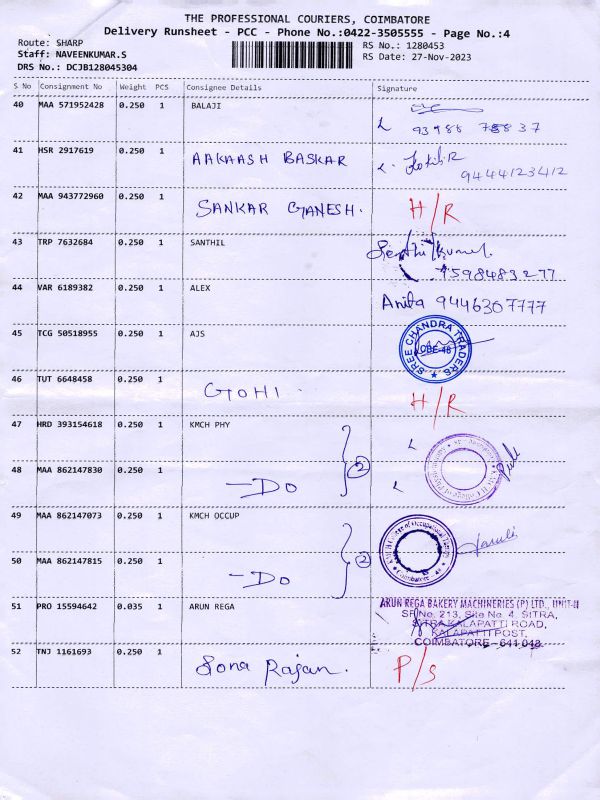 THE PROFESSIONAL COURIERS, COIMBATORE
Delivery Runsheet - PCC - Phone No.:0422-3505555 - Page No.:4
Route: SHARP
Staff: NAVEENKUMAR.S
DRS No.: DCJB128045304
RS No.: 1280453
RS Date: 27-Nov-2023
S No Consignment No Weight PCS Consignee Details Signature
40 MAA 571952428 0.250 1 BALAJI
41 HSR 2917619 0.250 1 AAKAASH BASKAR
9444123412
42 MAA 943772960 0.250 1 SANKAR GANESH. H/R
43 TRP 7632684 0.250 1 SANTHIL Senthilkumar.
7598483277
44 VAR 6189382 0.250 1 ALEX Anita 9446307777
45 TCG 50518955 0.250 1 AJS SREE CHANDRA TRADERS CBE-48
46 TUT 6648458 0.250 1 GOHI. H/R
47 HRD 393154618 0.250 1 KMCH PHY
48 MAA 862147830 0.250 1 -DO 2
49 MAA 862147073 0.250 1 KMCH OCCUP KMCH College of Occupational Therapy Coimbatore
50 MAA 862147815 0.250 1 -DO 2
51 PRO 15594642 0.035 1 ARUN REGA ARUN REGA BAKERY MACHINERIES (P) LTD., UNIT-II
SF No. 213, Site No 4 SITRA,
SITRA KALAPATTI ROAD,
KALAPATTI POST,
COIMBATORE - 641 048
52 TNJ 1161693 0.250 1 Sona Rajan. P/S